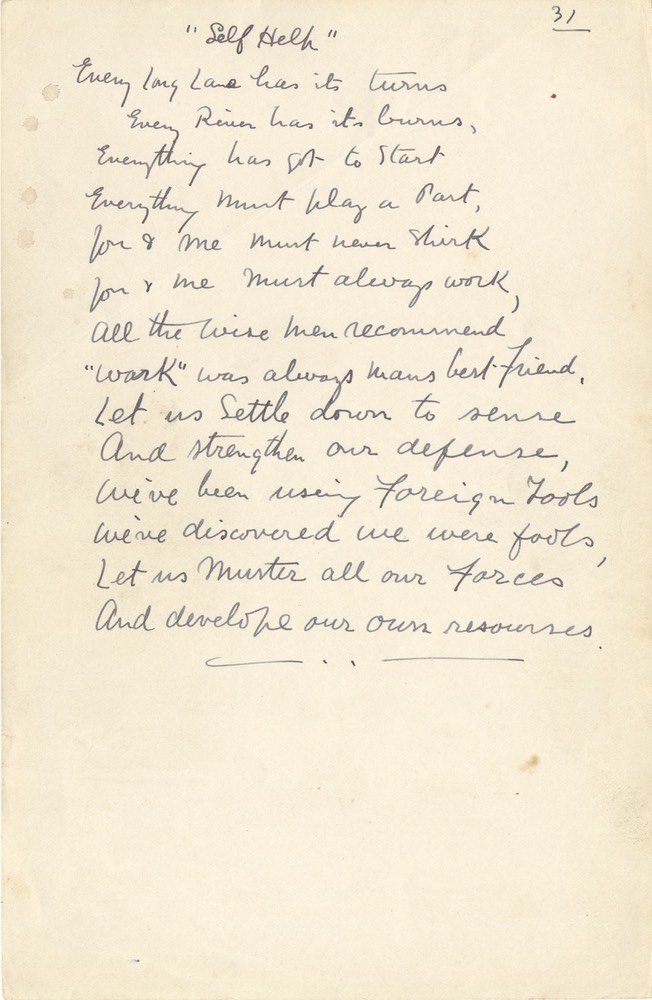 31
"Self Help"
Every long Lane has its turns
Every River has its burns,
Everything has got to Start
Everything Must play a Part,
You & me must never Shirk
You & me Must always work,
All the Wise Men recommend
"Work" was always mans best friend.
Let us Settle down to sense
And strengthen our defense,
We've been using Foreign Tools
We've discovered we were fools,
Let us Muster all our Forces
And develope our own resourses.